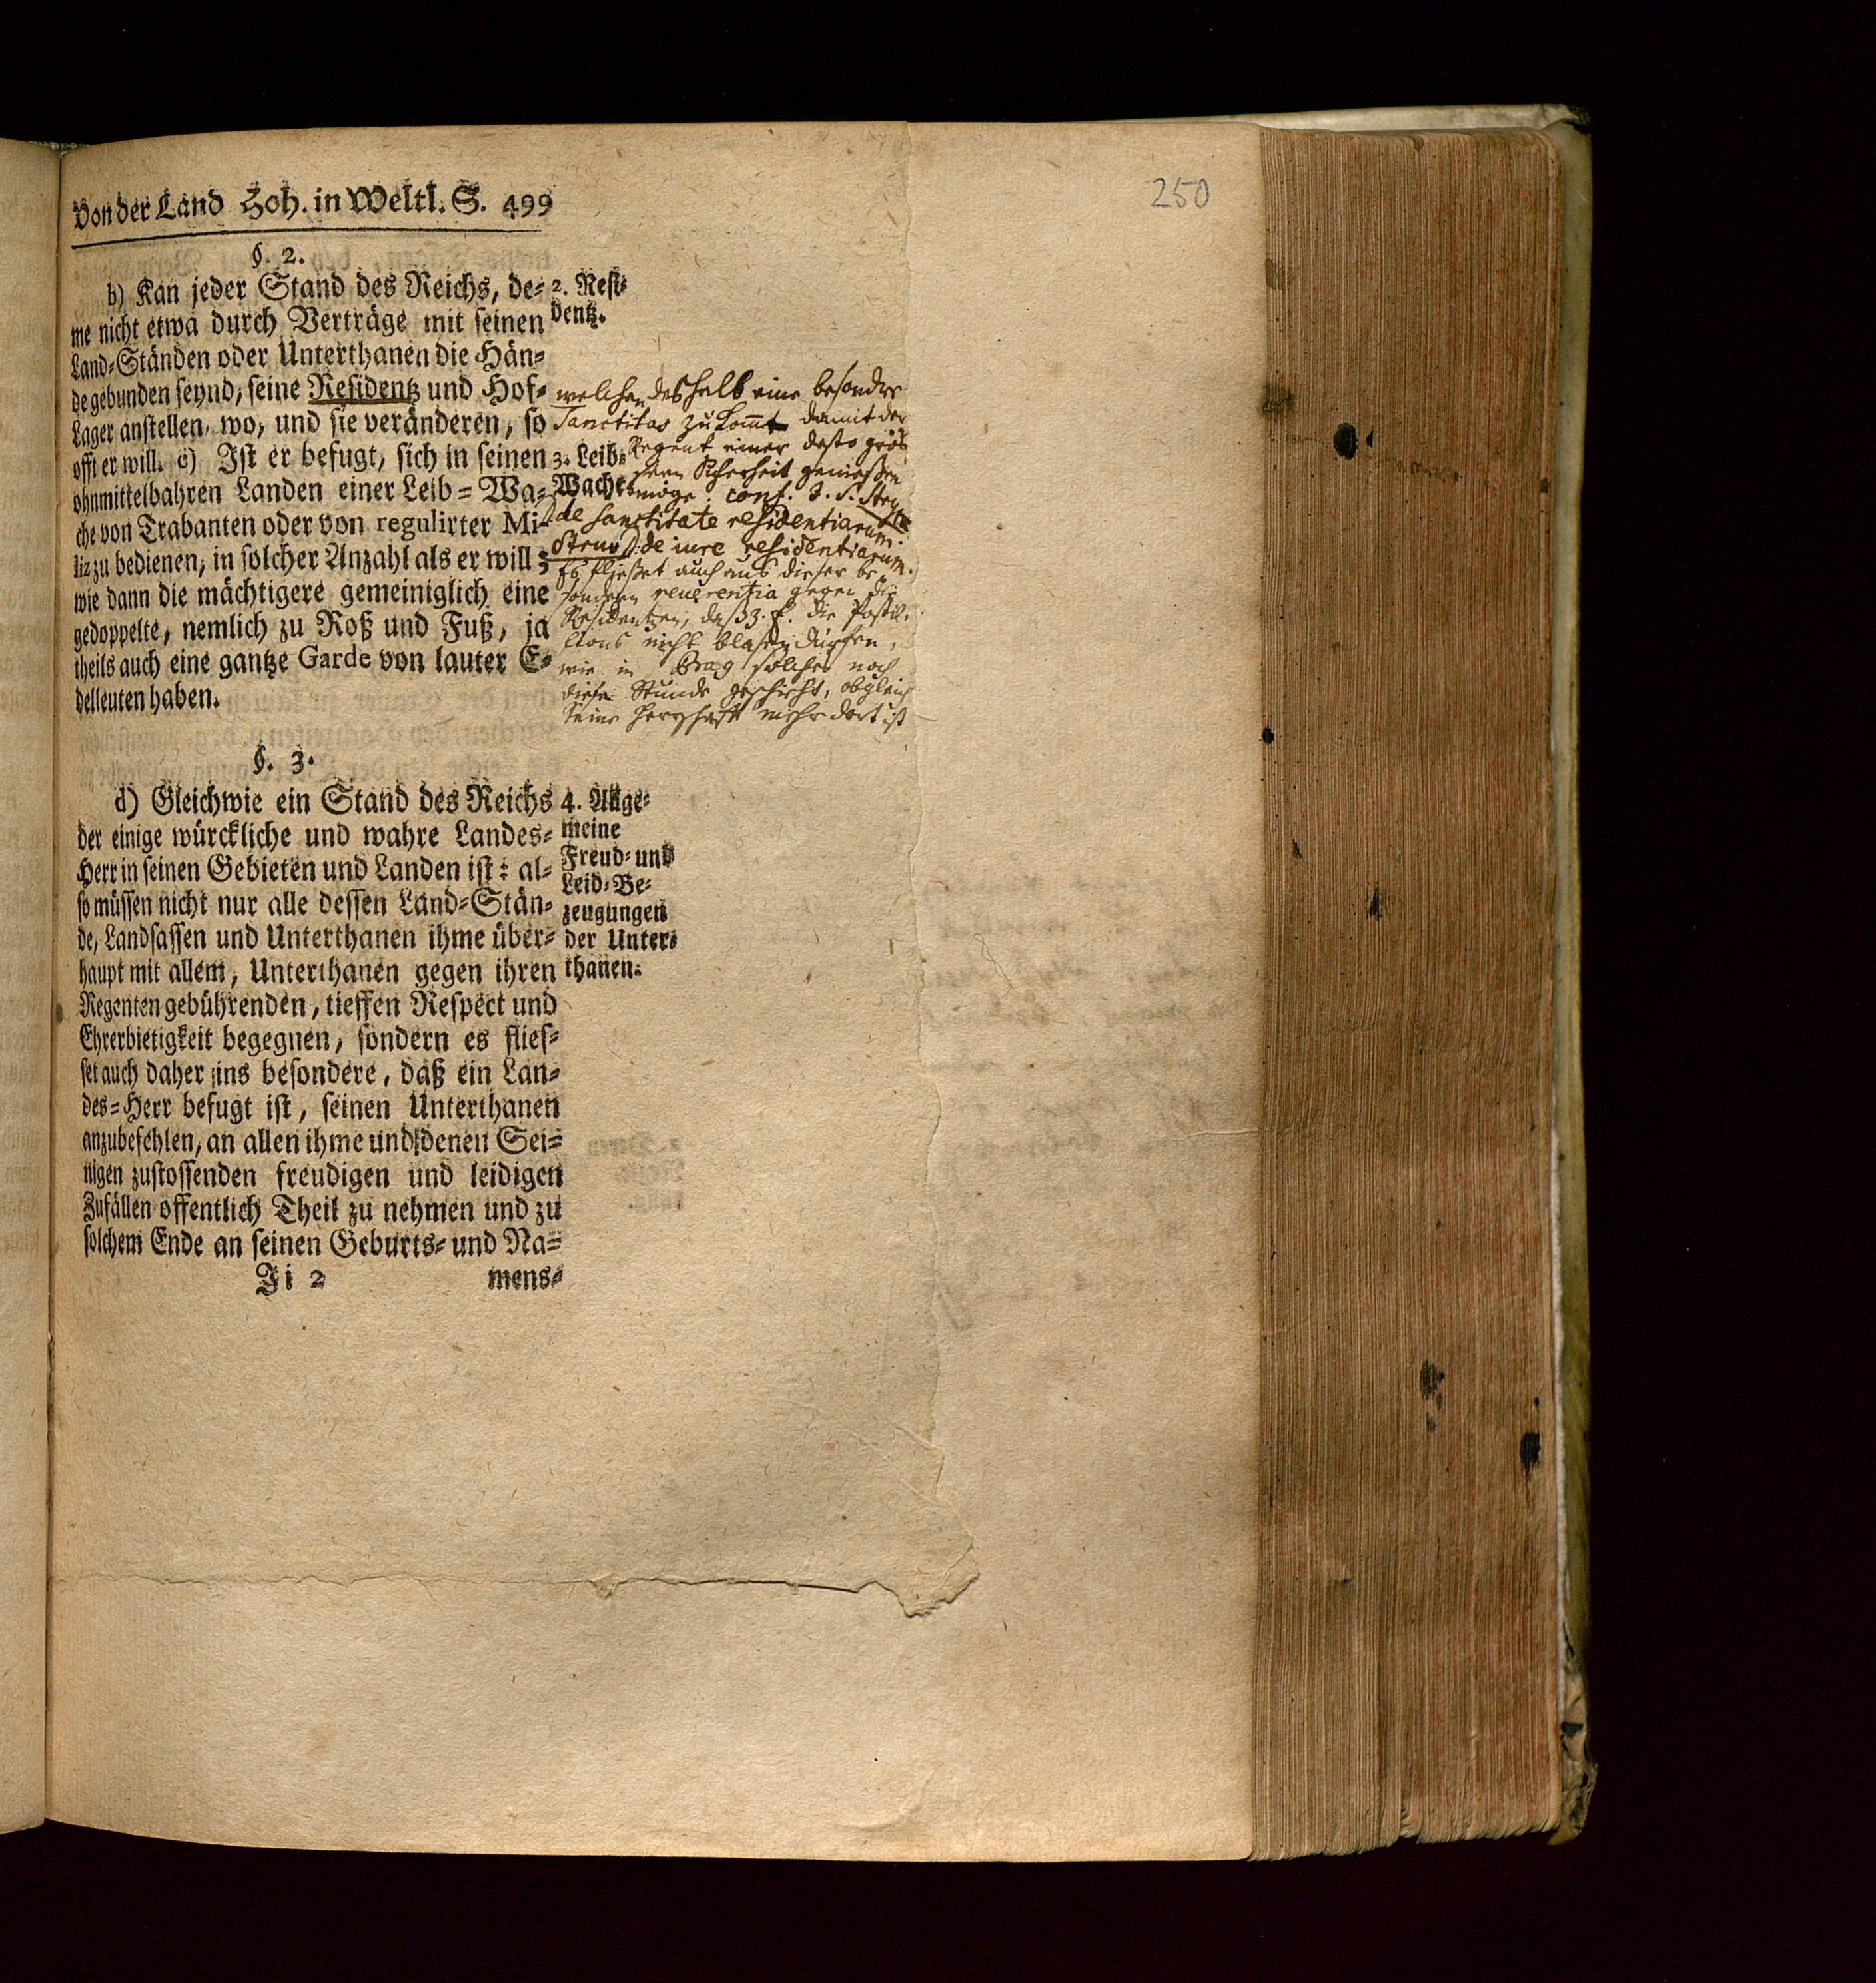 250
Von der Land Hoh. in Weltl. S. 499
§. 2.
b) Kan jeder Stand des Reichs, de-
me nicht etwa durch Verträge mit seinen
Land-Ständen oder Unterthanen die Hän-
de gebunden seynd, seine Residentz und Hof-
Lager anstellen, wo, und sie veränderen, so
offt er will. c) Ist er befugt, sich in seinen
ohnmittelbahren Landen einer Leib-Wa-
che von Trabanten oder von regulirter Mi-
liz zu bedienen, in solcher Anzahl als er will;
wie dann die mächtigere gemeiniglich eine
gedoppelte, nemlich zu Roß und Fuß, ja
theils auch eine gantze Garde von lauter E-
delleuten haben.
2. Resi-
dentz.
3. Leib-
Wacht.
welchen deshalb eine besondre
Sanctitas zukom̄t damit der
Regent einer desto grös
sern Sicherheit genießen
möge. conf. J. S.
de sanctitate residentiarum.
Struv D. de iure residentiarum.
Es fließet auch aus dieser be
sondern reuerentia gegen die
Residentzen, daß z. E. die Postil-
lions nicht blasen dürfen,
wie in Prag solches noch
diese Stunde geschieht, obgleich
keine Herrschafft mehr dort ist
§. 3.
d) Gleichwie ein Stand des Reichs
der einige würckliche und wahre Landes-
Herr in seinen Gebieten und Landen ist: al-
so müssen nicht nur alle dessen Land-Stän-
de, Landsassen und Unterthanen ihme über-
haupt mit allem, Unterthanen gegen ihren
Regenten gebührenden, tieffen Respect und
Ehrerbietigkeit begegnen, sondern es flies-
set auch daher ins besondere, daß ein Lan-
des-Herr befugt ist, seinen Unterthanen
anzubefehlen, an allen ihme und denen Sei-
nigen zustossenden freudigen und leidigen
Zufällen offentlich Theil zu nehmen und zu
solchem Ende an seinen Geburts- und Na-
4. Allge-
meine
Freud- und
Leid-Be-
zeugungen
der Unter-
thanen.
Ji 2 mens-